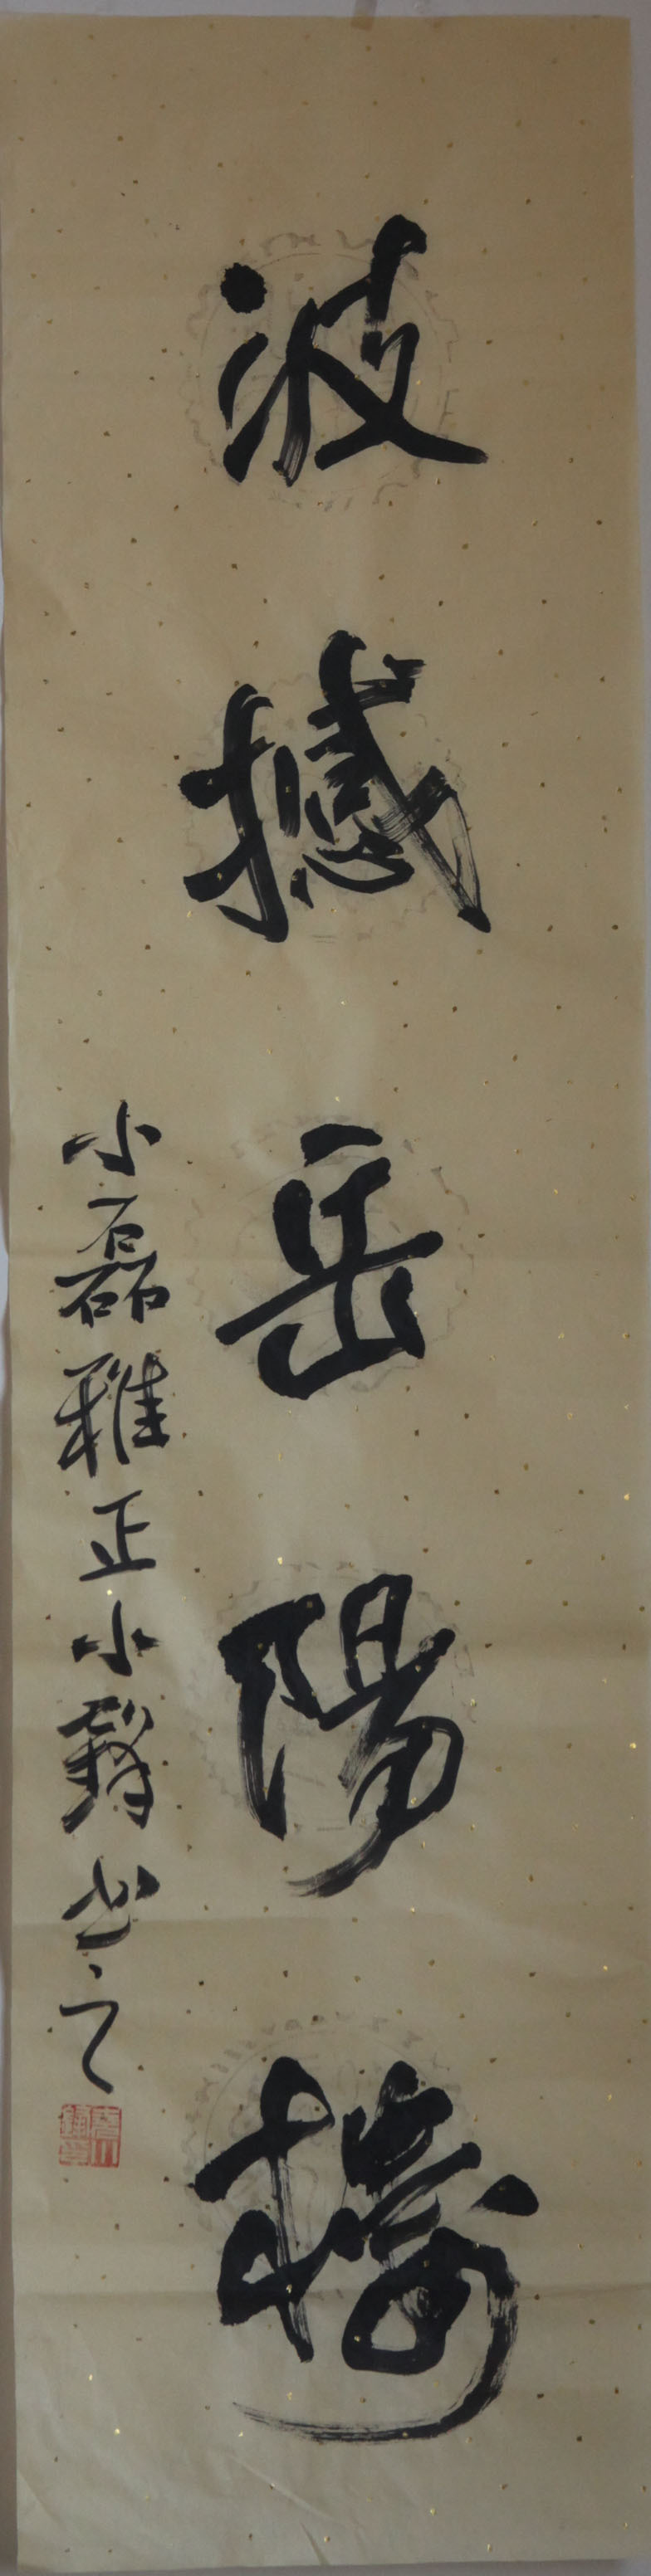 波撼岳陽
小磊雅正小书之